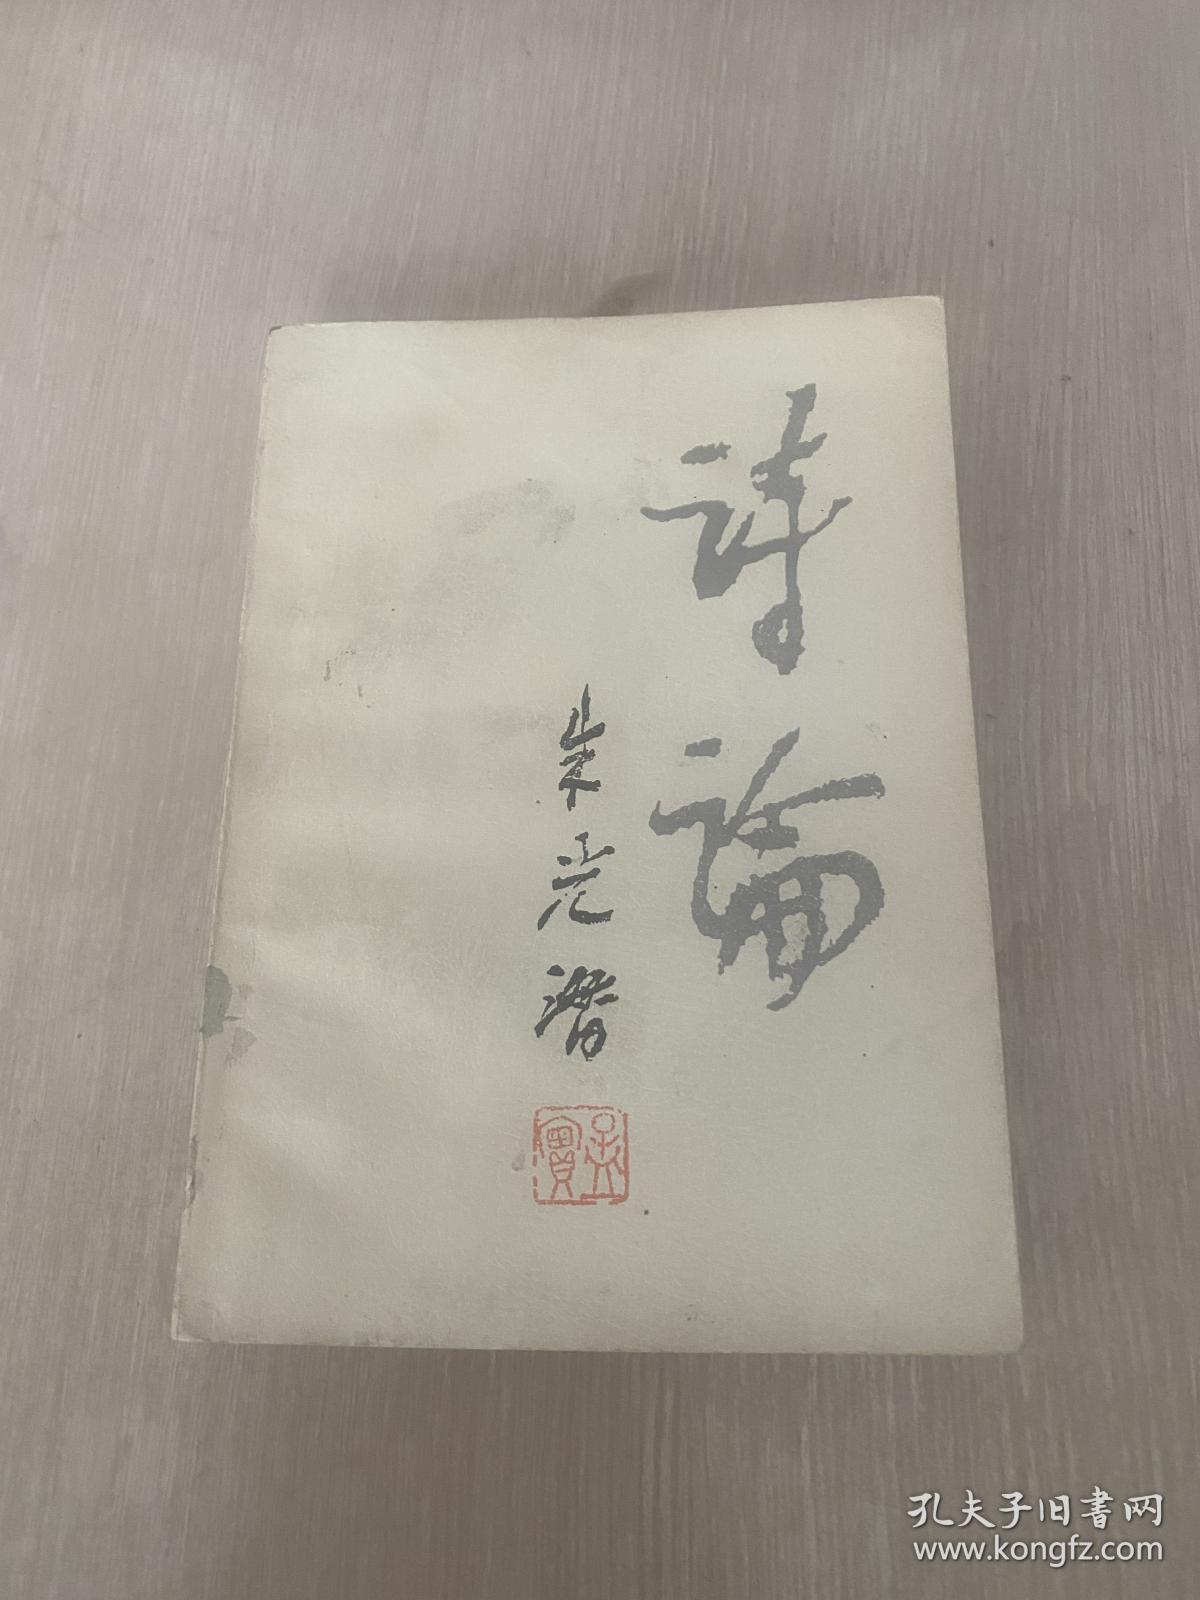 詩論
朱光潛
孟實
孔夫子旧书网
www.kongfz.com